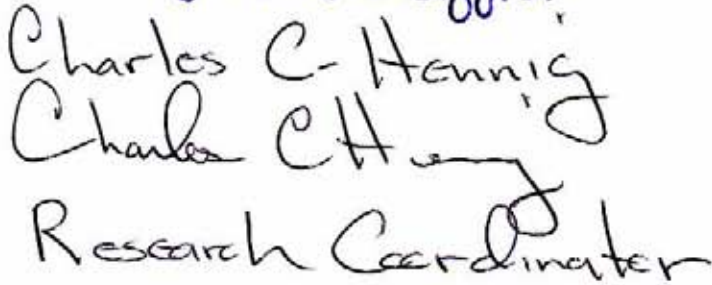 Charles C- Hennig
Charles C H
Research Coordinator